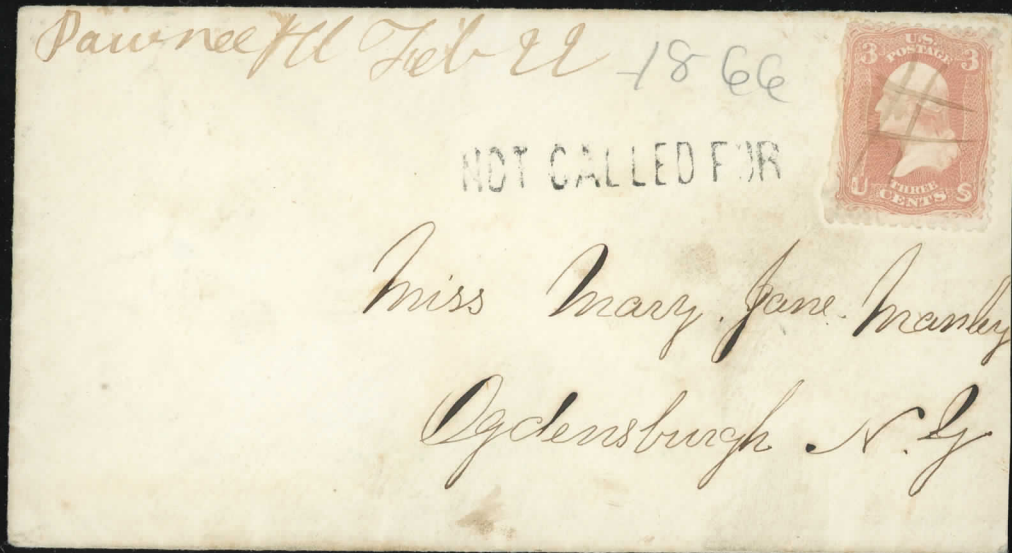 Pawnee Ill Feb 22 1866
3 U.S. POSTAGE 3
U THREE CENTS S
NOT CALLED FOR
Miss Mary Jane Manley
Ogdensburgh N.Y